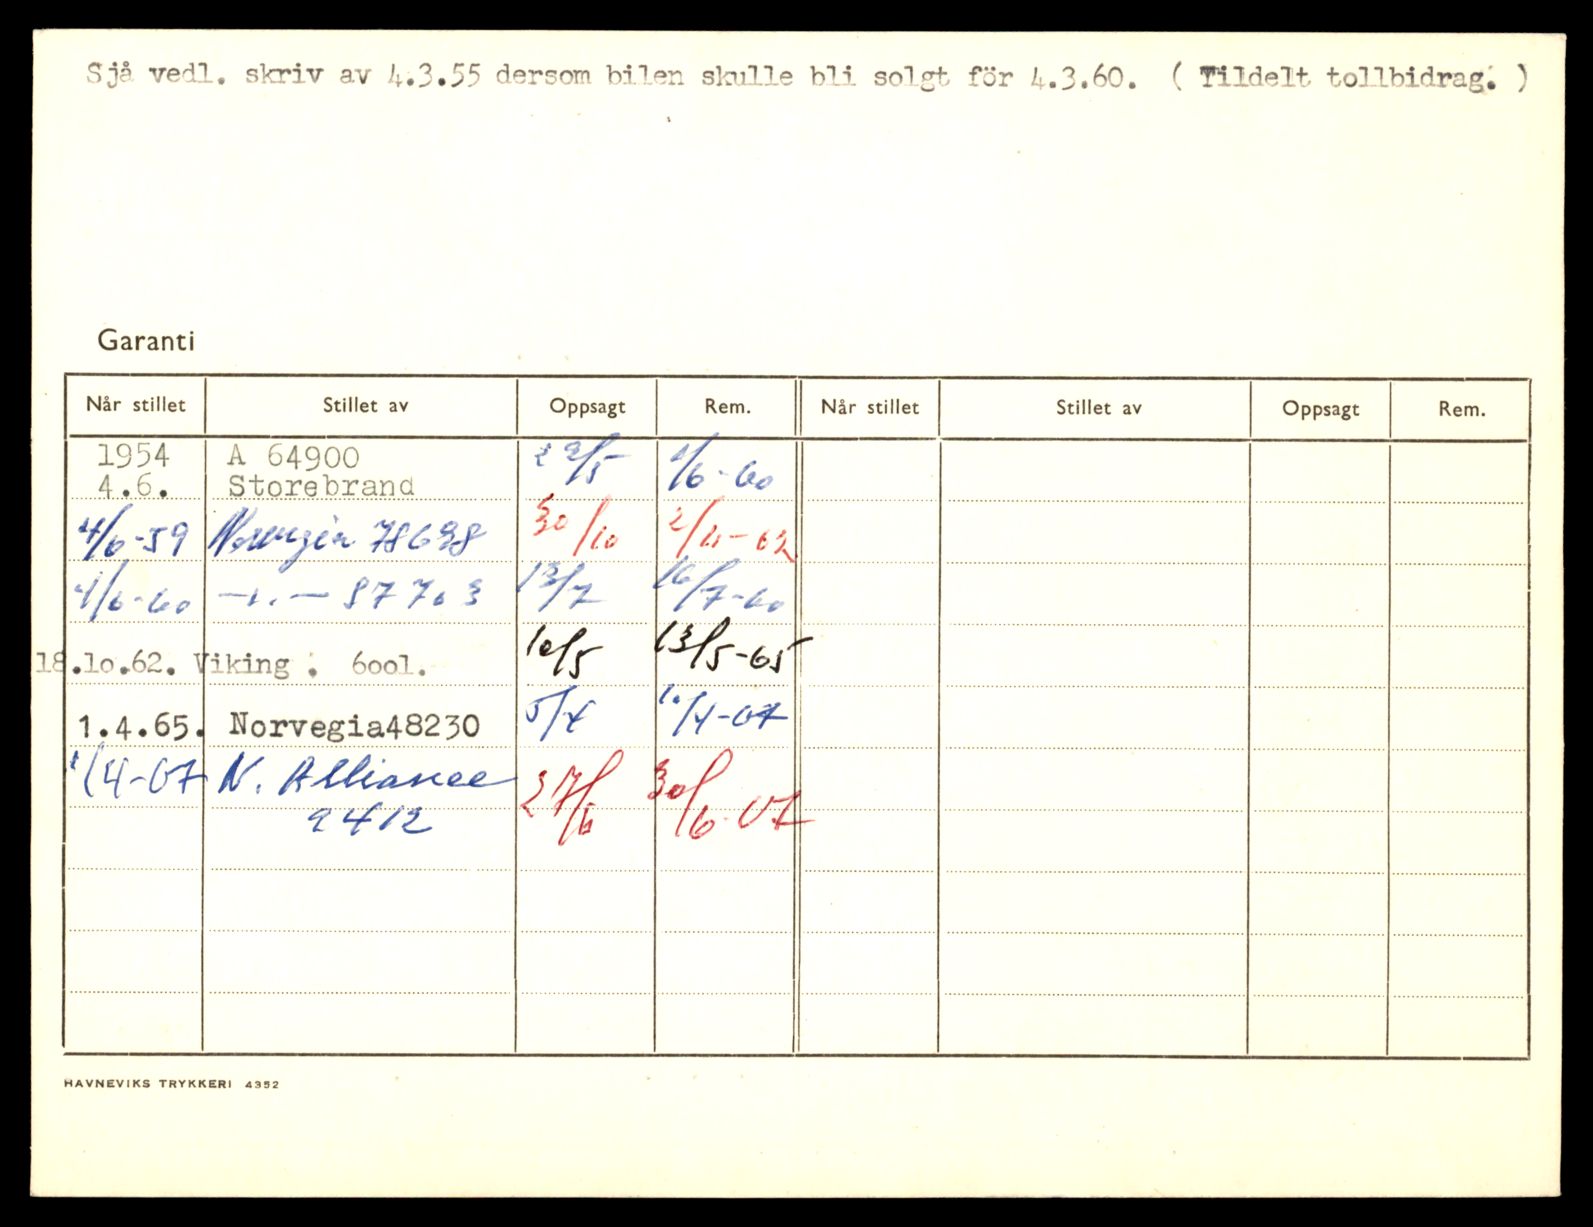 Sjå vedl. skriv av 4.3.55 dersom bilen skulle bli solgt för 4.3.60. ( Tildelt tollbidrag. )
Garanti
Når stillet Stillet av Oppsagt Rem. Når stillet Stillet av Oppsagt Rem.
1954 A 64900 29/5 1/6-60
4.6. Storebrand
4/6-59 Norvegia 78698 30/10 2/11-62
4/6-60 —"— 87703 13/7 16/7-60
18.10.62. Viking . 6001. 10/5 13/5-65
1.4.65. Norvegia48230 5/4 10/4-67
1/4-67 N. Alliance 27/6 30/6-67
9412
HAVNEVIKS TRYKKERI 4352